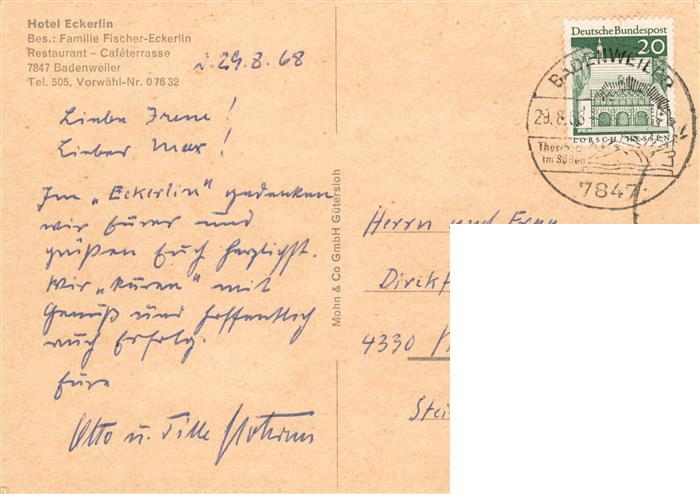 Hotel Eckerlin
Bes.: Familie Fischer-Eckerlin
Restaurant – Caféterrasse
7847 Badenweiler
Tel. 505, Vorwähl-Nr. 0 76 32
d. 29.8.68
Liebe Irene!
Lieber Max!
Im „Eckerlin" gedenken
wir Eurer und
grüßen Euch herzlichst.
Wir „kuren" mit
Genuß und hoffentlich
auch Erfolg.
Eure
Otto u. Tille
Mohn & Co GmbH Gütersloh
Deutsche Bundespost
20
LORSCH HESSEN
BADENWEILER
29.8.68
Therm
im Süden
7847
Herrn und Frau
Direkt
4330
Stei